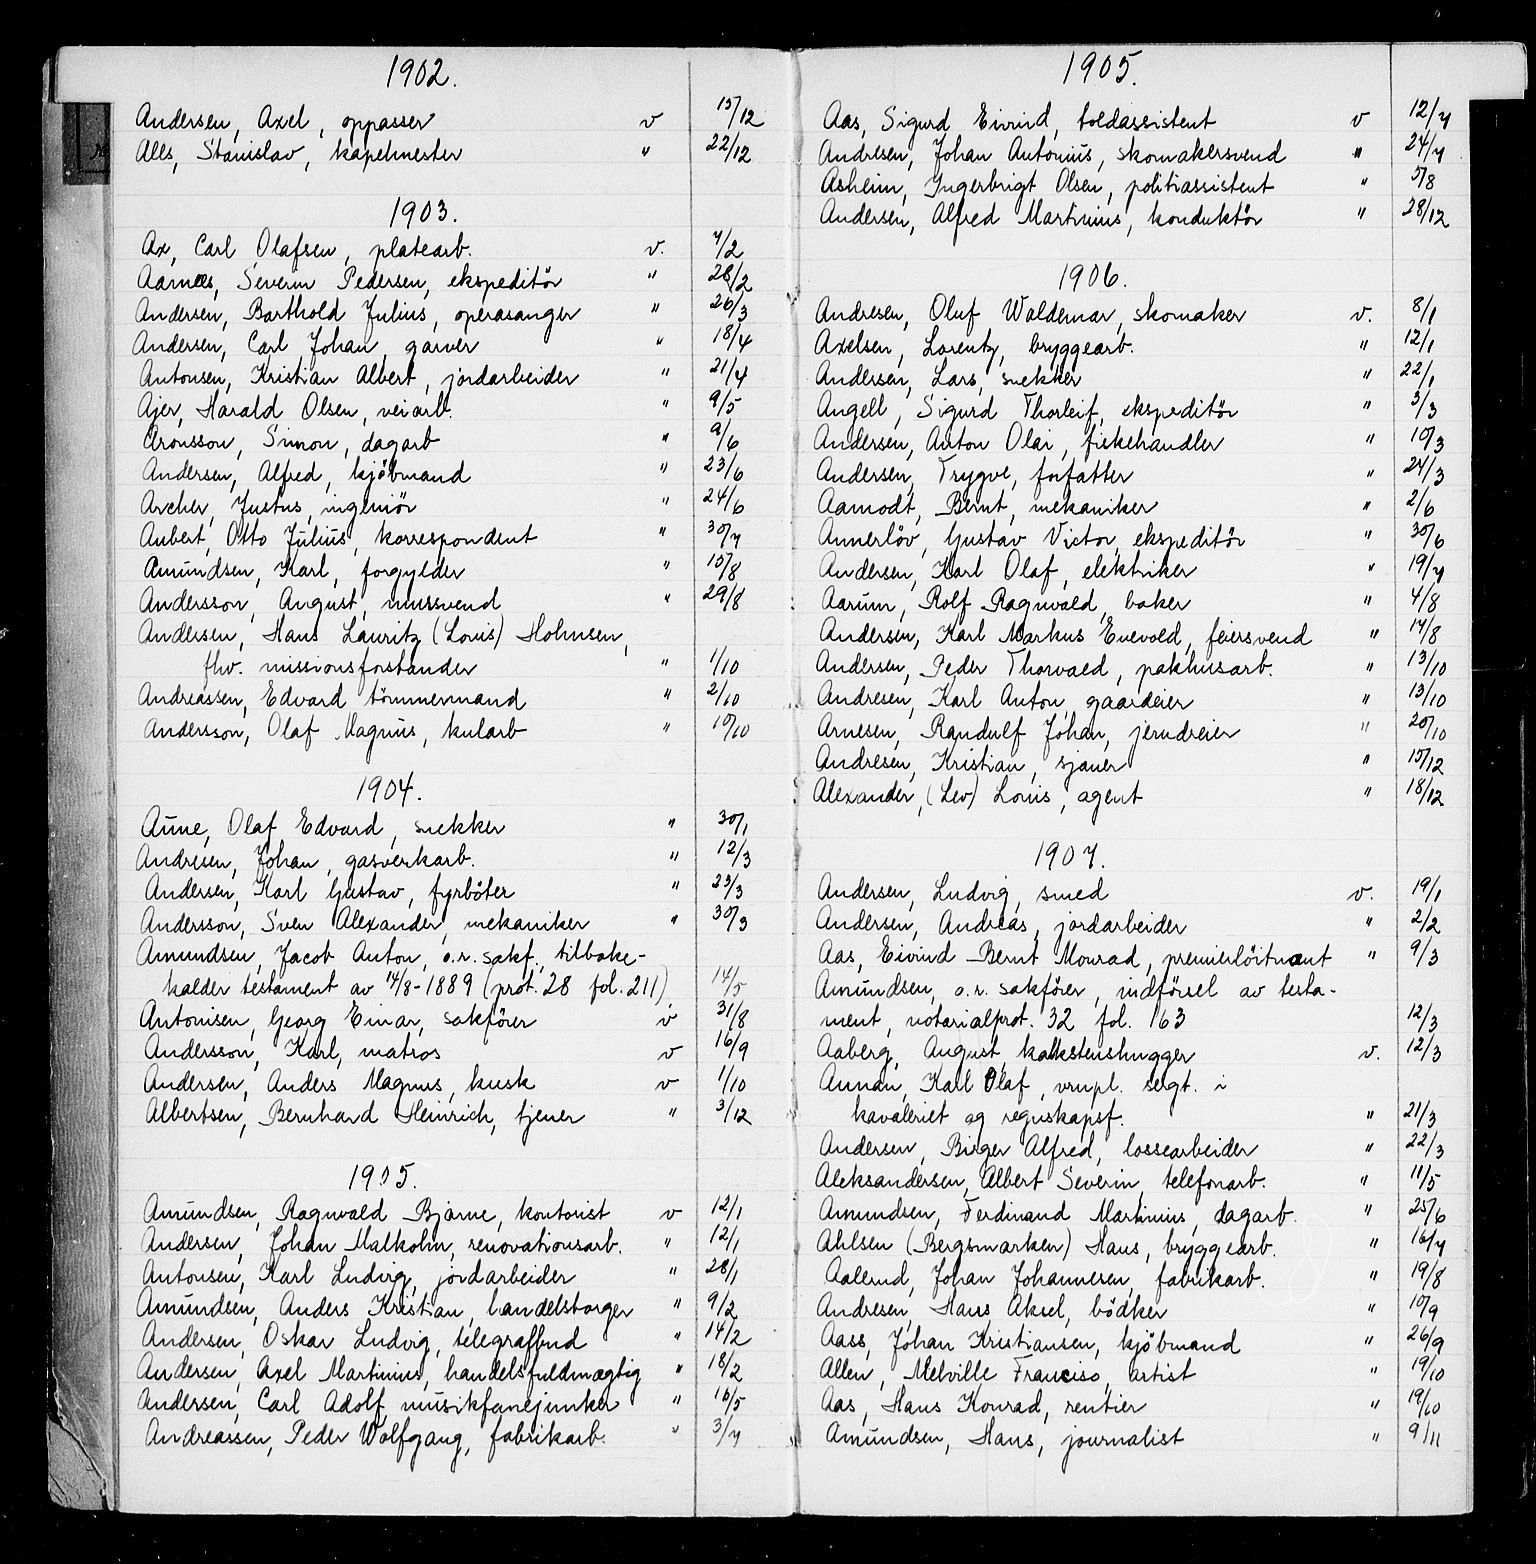 1902.
Andersen, Axel, oppasser v 15/12
Alls, Stanislav, kapelmester " 22/12
1903.
Ax, Carl Olafsen, platearb. v. 7/2
Aarnees, Severin Pedersen, ekspeditör " 28/2
Andersen, Barthold Julius, operasanger " 26/3
Andersen, Carl Johan, garver " 18/4
Antonsen, Kristian Albert, jordarbeider " 21/4
Ajer, Harald Olsen, veiarb. " 9/5
Aronsson, Simon, dagarb " 9/6
Andersen, Alfred, kjöbmand " 23/6
Archer, Justus, ingeniör " 24/6
Aubert, Otto Julius, korrespondent " 30/7
Amundsen, Karl, forgylder " 15/8
Andersson, August, mursvend " 29/8
Andersen, Hans Lauritz (Louis) Holmsen,
fhv. missionsforstander " 1/10
Andreassen, Edvard tömmermand " 2/10
Andersson, Olaf Magnus, kularb " 10/10
1904.
Aune, Olaf Edvard, snekker " 30/1
Andresen, Johan, gasverkarb. " 12/3
Andersen, Karl Gustav, fyrböter " 23/3
Andersson, Sven Alexander, mekaniker " 30/3
Amundsen, Jacob Anton, o.r. sakf., tilbake-
kalder testament av 14/8-1889 (prot. 28 fol. 211) 14/5
Antonisen, Georg Einar, sakförer v 31/8
Andersson, Karl, matros v 16/9
Andersen, Anders Magnus, kusk v 1/10
Albertsen, Bernhard Heinrich, tjener " 3/12
1905.
Amundsen, Ragnvald Bjarne, kontorist v 12/1
Andersen, Johan Malkolm, renovationsarb. " 12/1
Antonsen, Karl Ludvig, jordarbeider " 28/1
Amundsen, Anders Kristian, handelsborger " 9/2
Andersen, Oskar Ludvig, telegrafbud " 14/2
Andersen, Axel Martinius, handelsfuldmægtig " 18/2
Andersen, Carl Adolf, musikfanejunker " 16/5
Andreassen, Peder Wolfgang, fabrikarb. " 3/7
1905.
Aas, Sigurd Eivind, toldassistent v 12/7
Andresen, Johan Antonius, skomakersvend " 24/7
Asheim, Ingerbrigt Olsen, politiassistent " 5/8
Andersen, Alfred Martinius, konduktör " 28/12
1906.
Andresen, Oluf Waldemar, skomaker v. 8/1
Axelsen, Lorentz, bryggearb. " 12/1
Andersen, Lars, snekker " 22/1
Angell, Sigurd Thorleif, ekspeditör " 3/3
Andersen, Anton Olai, fiskehandler " 10/3
Andersen, Trygve, forfatter " 24/3
Aamodt, Bernt, mekaniker " 2/6
Annerlöv, Gustav Victor, ekspeditör " 30/6
Andersen, Karl Olaf, elektriker " 19/7
Aarum, Rolf Ragnvald, baker " 4/8
Andersen, Karl Markus Enevold, feiersvend " 14/8
Andersen, Peder Thorvald, pakhusarb. " 13/10
Andresen, Karl Anton, gaardeier " 13/10
Arnesen, Randulf Johan, jerndreier " 20/10
Andresen, Kristian, sjauer " 15/12
Alexander, (Lev) Louis, agent " 18/12
1907.
Andersen, Ludvig, smed v. 19/1
Andersen, Andreas, jordarbeider " 2/2
Aas, Eivind Bernt Monrad, premierlöitnant " 9/3
Amundsen, o.r. sakförer, indförsel av testa-
ment, notarialprot. 32 fol. 163 12/3
Aaberg, August, kalkstenshugger v. 12/3
Annan, Karl Olaf, vrnpl. sergt. i
kavaleriet og regnskapsf. " 21/3
Andersen, Birger Alfred, lossearbeider " 22/3
Aleksandersen, Albert Severin, telefonarb. " 11/5
Amundsen, Ferdinand Martinius, dagarb. " 25/6
Ahlsen (Bergsmarken) Hans, bryggearb. " 16/7
Aalerud, Johan Johannesen, fabrikarb. " 19/8
Andresen, Hans Aksel, bödker " 10/9
Aass, Johan Kristiansen, kjöbmand " 26/9
Allen, Melville Franciso, artist " 19/10
Aas, Hans Konrad, rentier " 19/10
Amundsen, Hans, journalist " 9/11